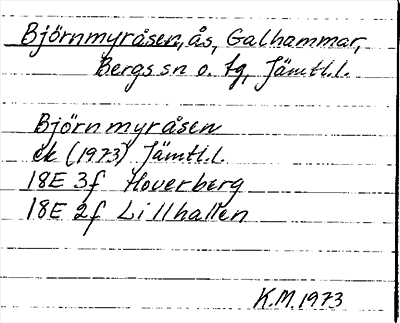 Björnmyråsen, ås, Galhammar,
Bergs sn o. tg, Jämtl.l.
Björnmyråsen
ek (1973) Jämtl.l.
18E 3f Hoverberg
18E 2f Lillhallen
K.M. 1973